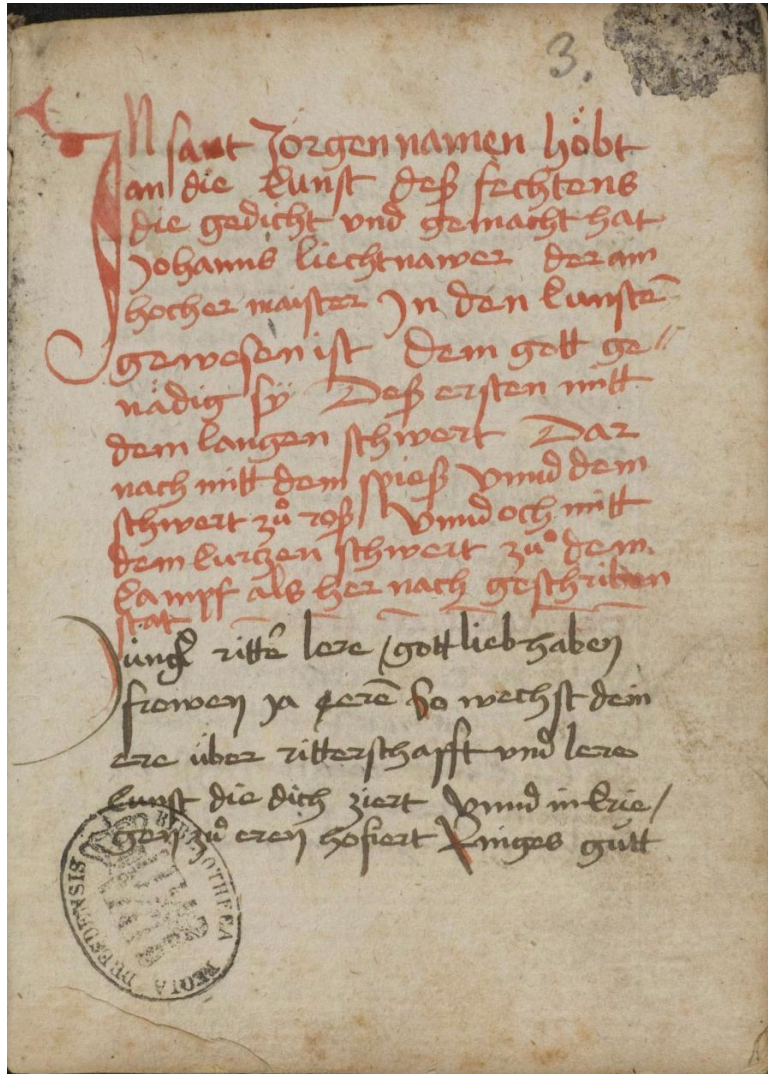 3.
JN sant Jörgen namen höbt
an die kunst deß fechtens
die gedicht vnd gemacht hat
Johanns liechtnawer der ain
hocher maister Jn den kunstē
gewesen ist dem gott ge〃
nädig sÿ Deß ersten mitt
dem langen schwert Dar
nach mitt dem spieß vnnd dem
schwert zů roß vnnd och mitt
dem kurtzen schwert zů dem
kampf als her nach geschriben
stat
Jungk ritte᷑ lere / gott lieb haben
frowen ja eerē So wechst dein
ere über ritterschafft vnd lere
kunst die dich ziert vnnd in krie /
gen zů eren hofiert Ringes gütt
BIBLIOTHECA REGIA DRESDENSIS